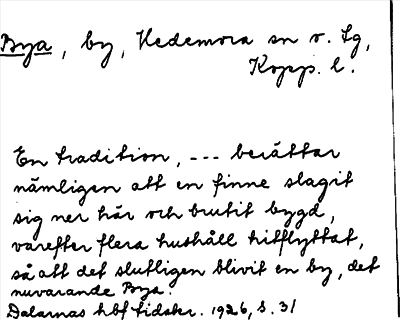 Bya, by, Hedemora sn o. Lg,
Kopp. l.
En tradition, --- berättar
nämligen att en finne slagit
sig ner här och brutit bygd,
varefter flera hushåll hitflyttat,
så att det slutligen blivit en by, det
nuvarande Bya.
Dalarnas hbf tidskr. 1926, s. 31